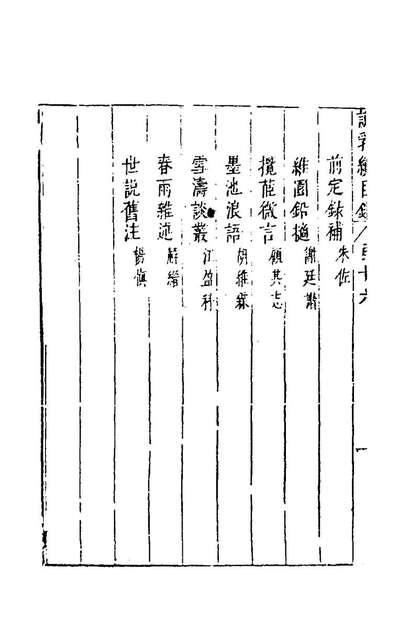 說郛續目錄 弓十六
前定錄補 朱佐
維園鉛擿 謝廷讃
攬茝微言 顧其志
墨池浪語 胡維霖
雪濤談叢 江盈科
春雨雜述 解縉
世說舊注 楊慎
一